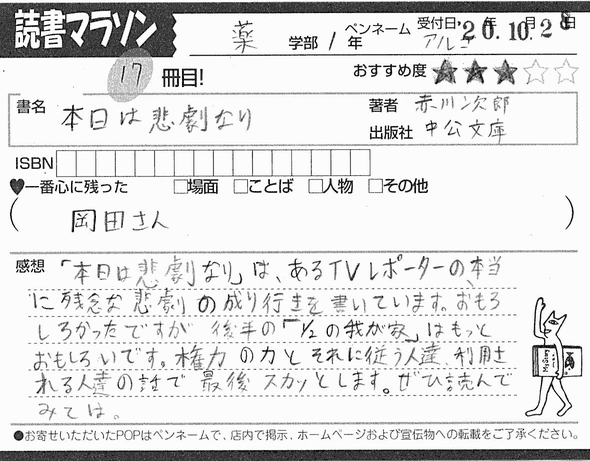 読書マラソン
薬 学部 / 年 ペンネーム アルニ 受付日:'20.10.28日
17 冊目! おすすめ度 ★★★☆☆
書名 本日は悲劇なり 著者 赤川次郎
出版社 中公文庫
ISBN
♥一番心に残った □場面 □ことば □人物 □その他
( 岡田さん )
感想 「本日は悲劇なり」は、あるTVレポーターの、本当
に残念な悲劇の成り行きを書いています。おもろ
しろかったですが 後半の「1/2の我が家」はもっと
おもしろいです。権力の力とそれに従う人達、利用さ
れる人達の話で 最後 スカッとします。ぜひ読んで
みては。
●お寄せいただいたPOPはペンネームで、店内で掲示、ホームページおよび宣伝物への転載をご了承ください。